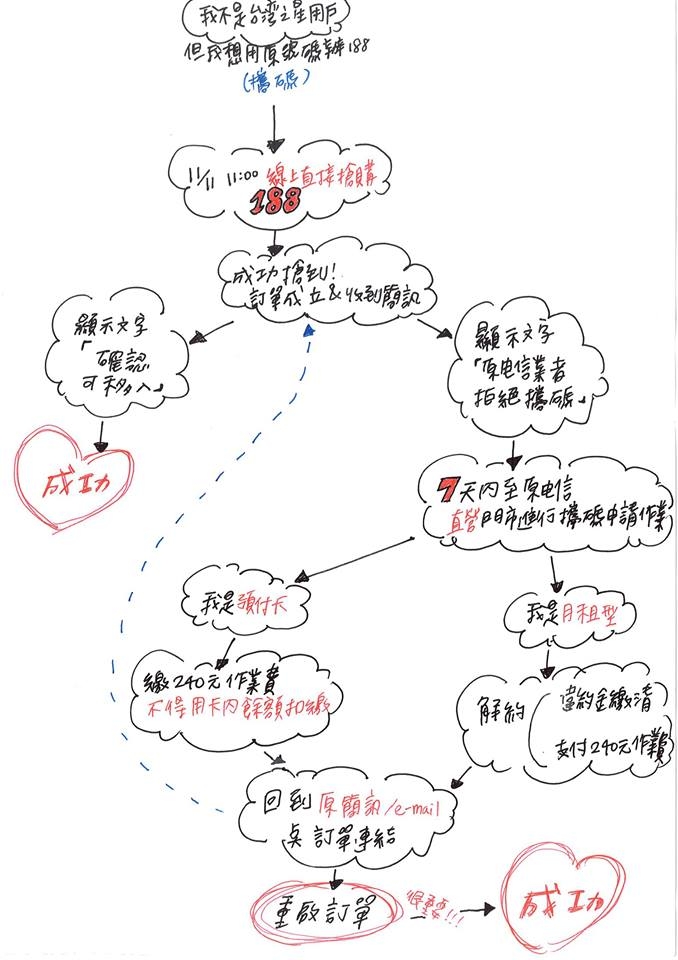 我不是台灣之星用戶
但我想用原號碼辦188
(攜碼)
11/11 11:00 線上直接搶購
188
成功搶到!
訂單成立&收到簡訊
顯示文字
「確認
可移入」
成功
顯示文字
「原电信業者
拒絕攜碼」
7天內至原电信
直營門市進行攜碼申請作業
我是預付卡
繳240元作業費
不得用卡內餘額扣繳
我是月租型
解約
違約金繳清
支付240元作業費
回到原簡訊/e-mail
點訂單連結
重啟訂單
很重要!!!
成功